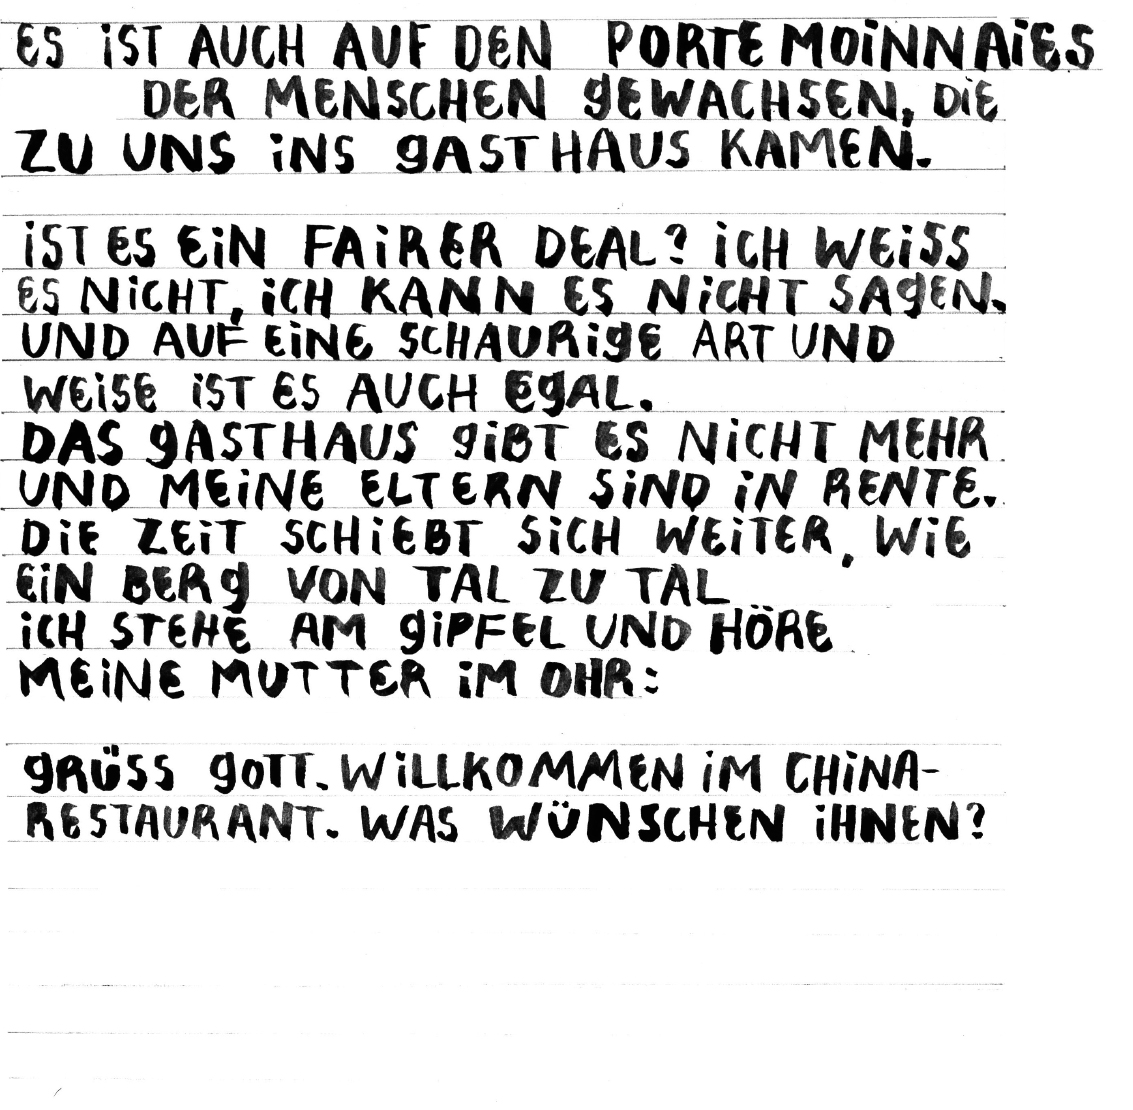 ES iST AUCH AUF DEN PORTEMOiNNAiES
DER MENSCHEN gEWACHSEN, DiE
ZU UNS iNS gASTHAUS KAMEN.
iST ES EiN FAiRER DEAL? iCH WEiSS
ES NiCHT, iCH KANN ES NiCHT SAgEN.
UND AUF EiNE SCHAURigE ART UND
WEiSE iST ES AUCH EgAL.
DAS gASTHAUS giBT ES NiCHT MEHR
UND MEiNE ELTERN SiND iN RENTE.
DiE ZEiT SCHiEBT SiCH WEiTER, WiE
EiN BERg VON TAL ZU TAL
iCH STEHE AM giPFEL UND HÖRE
MEiNE MUTTER iM OHR:
gRÜSS gOTT. WiLLKOMMEN iM CHiNA-
RESTAURANT. WAS WÜNSCHEN iHNEN?